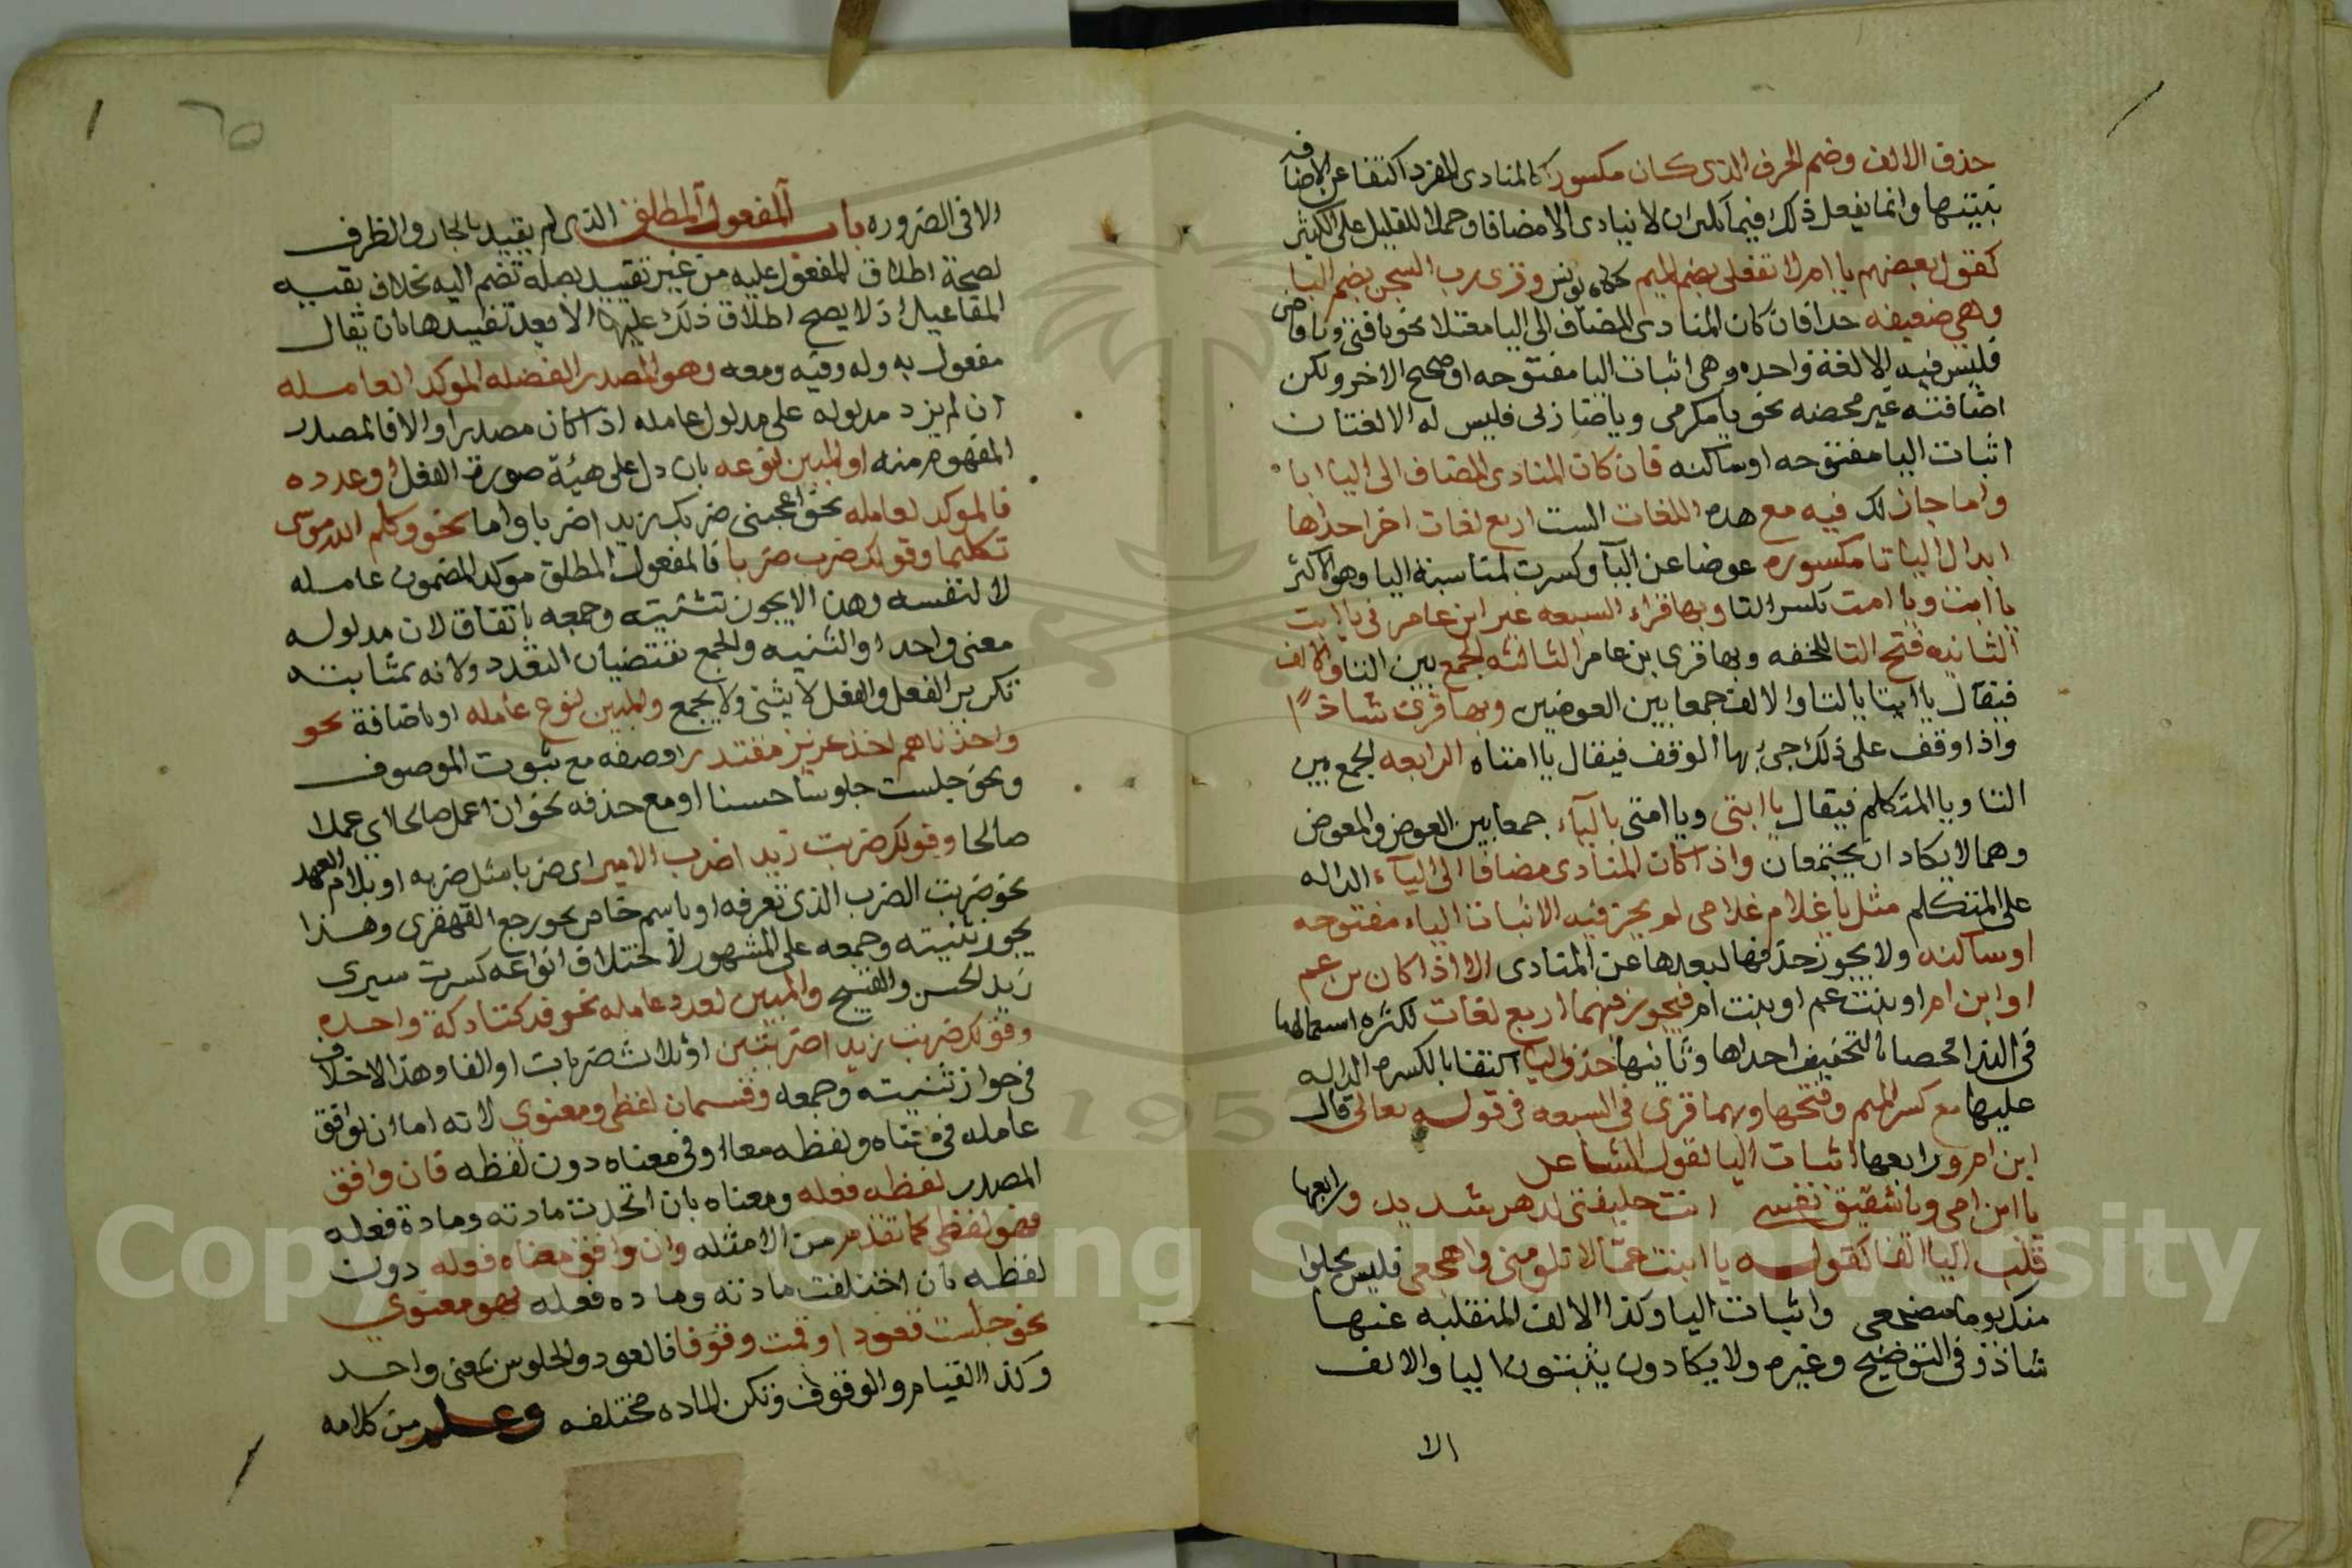 حذف الالف وضم الحرف الذى كان مكسورا كالمنادى المفرد اكتفا عن الاضافه
بنيتها وانما يفعل ذلك فيما يكثر ان لا ينادى الا مضافا وحملا للقليل على الكثير
كقول بعضهم يا ام لا تفعلى بضم الميم حكاه يونس وقرى رب السجن بضم البا
وهى ضعيفه جدا فان كان المنادى المضاف الى اليا معتلا نحو يا فتى ويا قاضى
فليس فيه الا لغة واحده وهى اثبات اليا مفتوحه او صحيح الاخر ولكن
اضافته غير محضه نحو يا مكرمى ويا ضاربى فليس له الا لغتان
اثبات اليا مفتوحه او ساكنه فان كان المنادى المضاف الى اليا ابا
واما جاز لك فيه مع هذه اللغات الست اربع لغات اخر احداها
ابدال اليا تا مكسوره عوضا عن اليآ وكسرت لمناسبة اليا وهو الاكثر
يا ابت ويا امت بكسر التا وبها قراء السبعه غير ابن عامر فى يا ابت
الثانيه فتح التا للخفه وبها قرى بن عامر الثالثه الجمع بين التا والالف
فيقال يا ابتا بالتا والالف جمعا بين العوضين وبها قرى شاذا
واذا وقف على ذلك جئ بها الوقف فيقال يا امتاه الرابعه الجمع بين
التا ويا المتكلم فيقال يا ابتى ويا امتى باليآء جمعا بين العوض والمعوض
وهما لا يكاد ان يجتمعان واذا كان المنادى مضافا الى اليآء الداله
على المتكلم مثل يا غلام غلامى لم يجز فيه الا اثبات الياء مفتوحه
او ساكنه ولا يجوز حذفها لبعدها عن المنادى الا اذا كان بن عم
او ابن ام او بنت عم او بنت ام فيجوز فيهما اربع لغات لكثره استعمالها
فى الندا فخصا بالتخفيف احداها وثانيها حذف اليا اكتفا بالكسره الداله
عليها مع كسر الميم وفتحها وبهما قرى فى السبعه فى قوله تعالى قال
ابن ام ورابعها اثبات اليا لقول الشاعر
يا ابن امى ويا شقيق نفسى انت خليفتنى لدهر شديد ورابعها
قلب اليا الفا كقوله يا ابنت عما لا تلومى واهجعى فليس يخلوا
منك يوما مضجعى واثبات اليا وكذا الالف المنقلبه عنها
شاذ وفى التوضيح وغيره ولا يكادون يثبتون اليا والالف
الا
٦٥
الا فى الضروره باب المفعول المطلق الذى لم يقيد بالجار والظرف
لصحة اطلاق المفعول عليه من غير تقييد بصلة تضم اليه بخلاف بقيه
المفاعيل اذ لا يصح اطلاق ذلك عليها الا بعد تقييدها بان يقال
مفعول به وله وفيه ومعه وهو المصدر الفضله الموكد لعامله
ان لم يزد مدلوله على مدلول عامله اذا كان مصدرا والا فالمصدر
المفهوم منه او المبين لنوعه بان دل على هيئة صورة الفعل او عدده
فالموكد لعامله نحو اعجبنى ضربك زيدا ضربا واما نحو وكلم الله موسى
تكليما وقولك ضرب ضربا فالمفعول المطلق موكد لمضمون عامله
لا لنفسه وهذا لا يجوز تثنيته وجمعه باتفاق لان مدلوله
معنى واحدا والتثنيه والجمع تقتضيان التعدد ولانه بمثابته
تكرير الفعل والفعل لا يثنى ولا يجمع والمبين لنوع عامله او باضافة نحو
واخذناهم اخذ عزيز مقتدر او صفه مع ثبوت الموصوف
ونحو جلست جلوسا حسنا او مع حذفه نحو ان اعمل صالحا اي عملا
صالحا وقولك ضربت زيدا ضرب الامير اى ضربا مثل ضربه او بلام العهد
نحو ضربت الضرب الذى تعرفه او باسم خاص نحو رجع القهقرى وهذا
يجوز تثنيته وجمعه على المشهور لاختلاف انواعه كسرت سيرى
زيد الحسن والقبيح والمبين لعدد عامله نحو فدكتا دكة واحده
وقولك ضربت زيدا ضربتين او ثلاث ضربات او الفا وهذا لا خلاف
فى جواز تثنيته وجمعه وقسمان لفظى ومعنوى لانه اما ان يوافق
عامله فى معناه ولفظه معا او فى معناه دون لفظه فان وافق
المصدر لفظه فعله ومعناه بان اتحدت مادته ومادة فعله
فهو لفظى كما تقدم من الامثله وان وافق معناه فعله دون
لفظه بان اختلفت مادته وماده فعله فهو معنوي
نحو جلست قعودا وقمت وقوفا فالقعود والجلوس بمعنى واحد
وكذا القيام والوقوف ولكن الماده مختلفه وعلم من كلامه
Copyright © King Saud University
1957